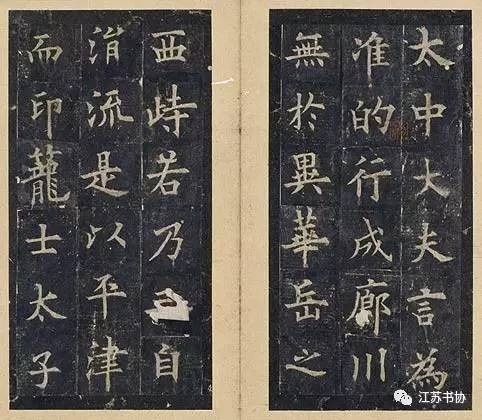 太中大夫言為
准的行成廊川
無於異華岳之
西峙若乃自
涓流是以平津
而印蘢士太子
江苏书协